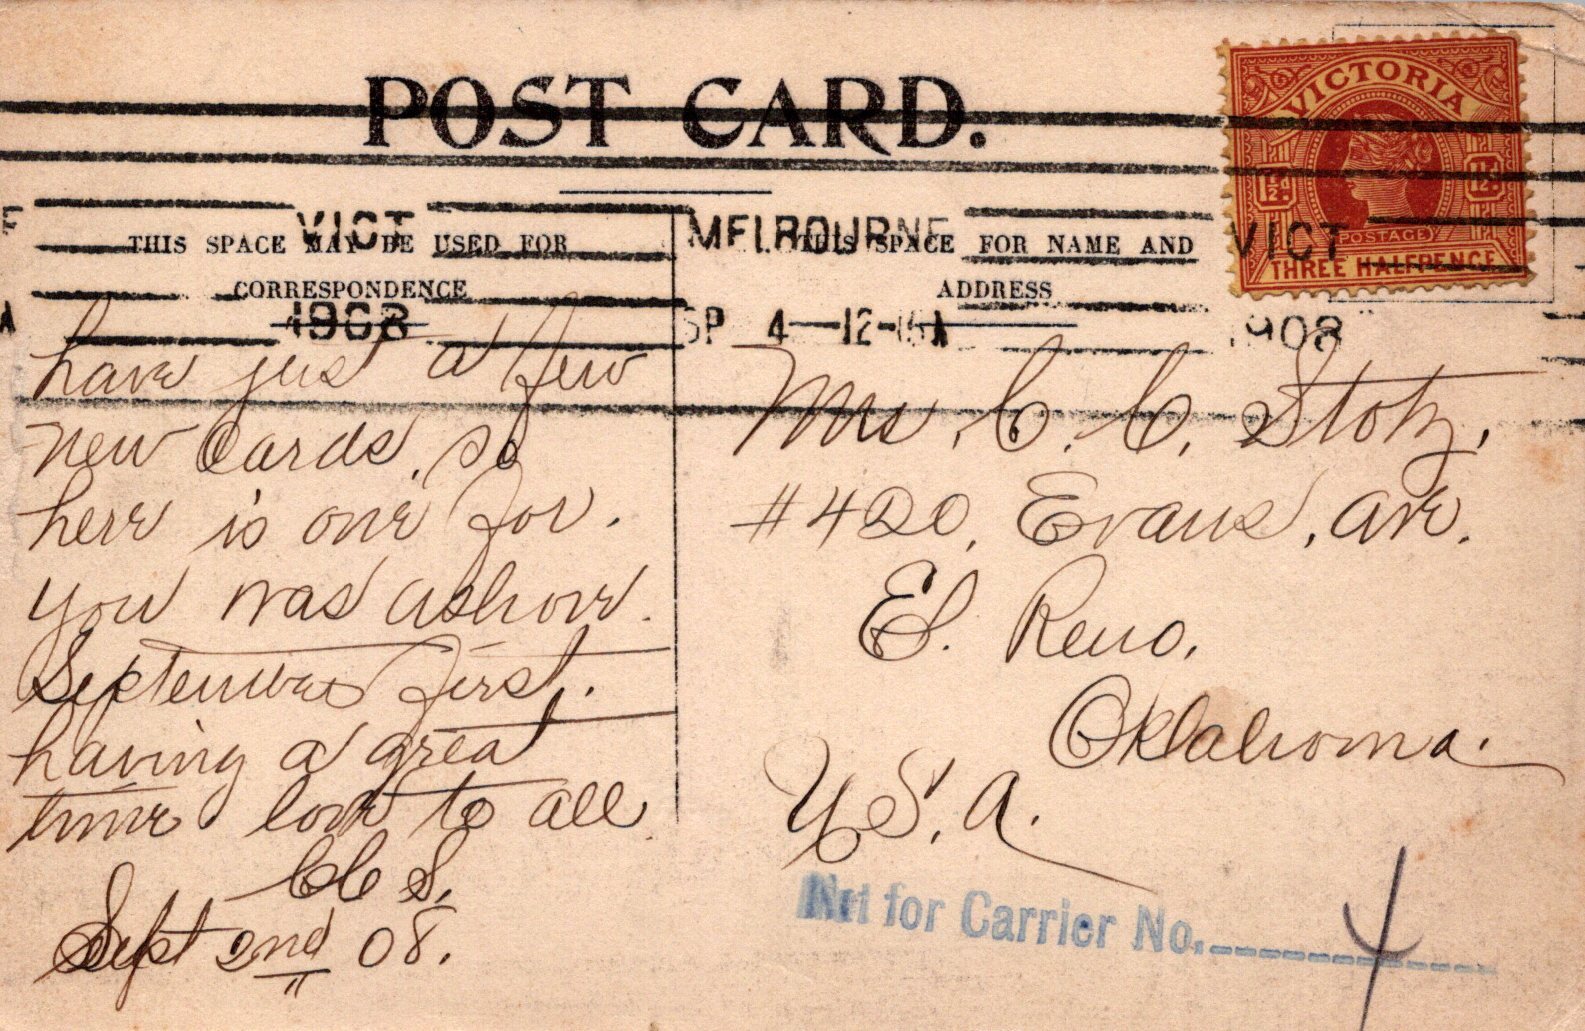 POST CARD.
VICTORIA
1½d.
1½d.
POSTAGE
THREE HALFPENCE
VICT
MELBOURNE
VICT
THIS SPACE MAY BE USED FOR
CORRESPONDENCE
THIS SPACE FOR NAME AND
ADDRESS
1908
SP 4—12-15A
1908
have just a few
new Cards, so
here is one for.
you was ashore.
September first.
having a great
time love to all
CC S.
Sept 2nd 08.
Mrs. C. C. Stotz.
#420, Evans, ave.
El. Reno.
Oklahoma.
U.S.A.
Not for Carrier No.
4